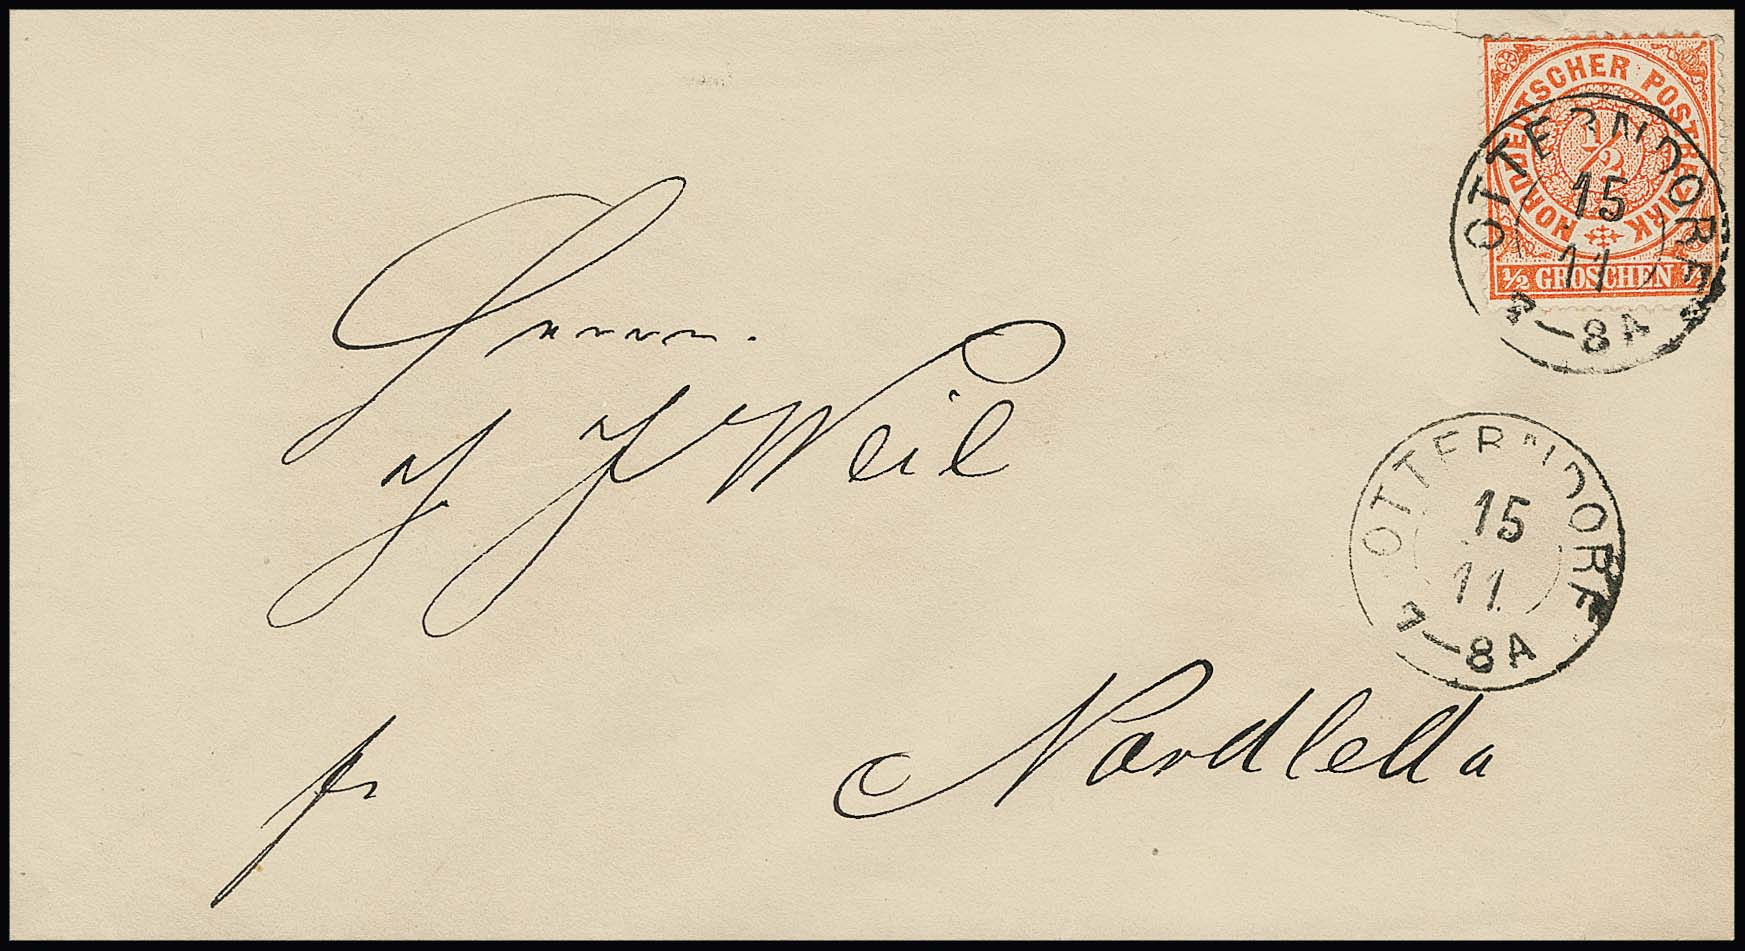 NORDDEUTSCHER POSTBEZIRK
1/2
1/2 GROSCHEN 1/2
OTTERNDORF
15
11
7-8A
Herrn.
J J Weil
OTTERNDORF
15
11
7-8A
Nordleda
fr